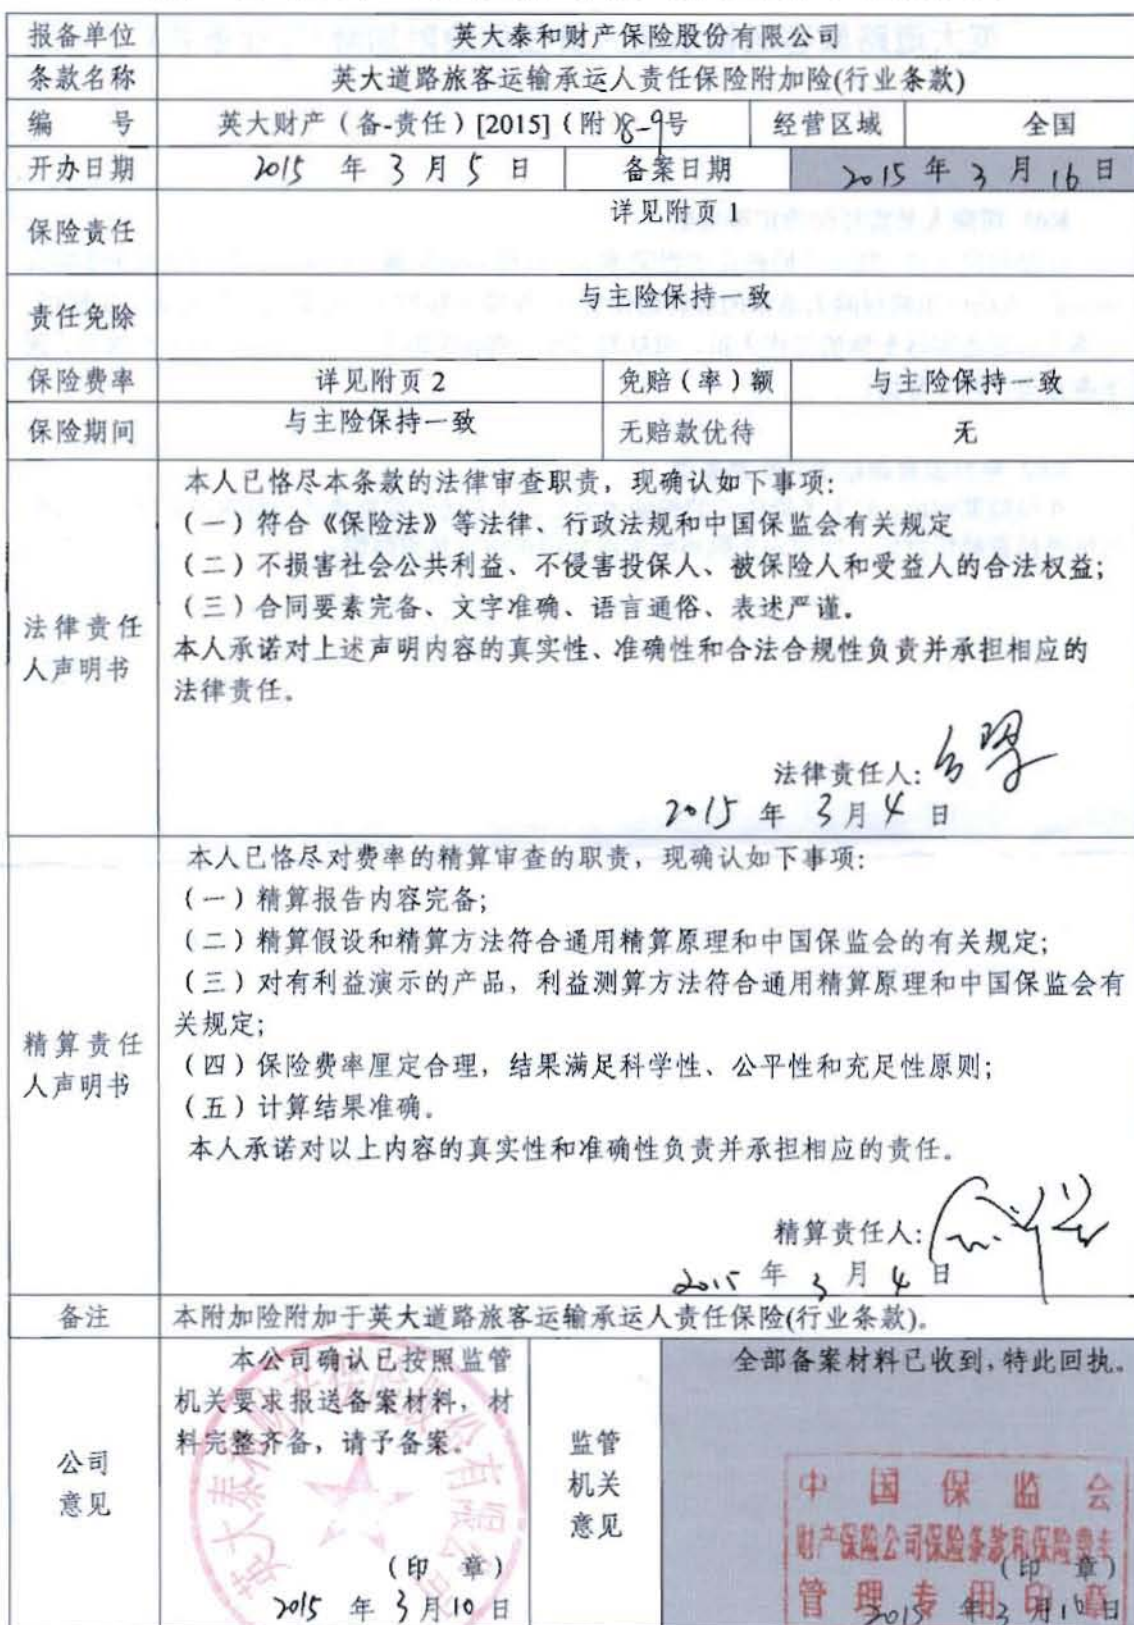 报备单位 英大泰和财产保险股份有限公司
条款名称 英大道路旅客运输承运人责任保险附加险(行业条款)
编 号 英大财产（备-责任）[2015]（附）8-9号 经营区域 全国
开办日期 2015 年 3 月 5 日 备案日期 2015 年 3 月 16 日
保险责任 详见附页 1
责任免除 与主险保持一致
保险费率 详见附页 2 免赔（率）额 与主险保持一致
保险期间 与主险保持一致 无赔款优待 无
法律责任
人声明书
本人已恪尽本条款的法律审查职责，现确认如下事项：
（一）符合《保险法》等法律、行政法规和中国保监会有关规定
（二）不损害社会公共利益、不侵害投保人、被保险人和受益人的合法权益；
（三）合同要素完备、文字准确、语言通俗、表述严谨。
本人承诺对上述声明内容的真实性、准确性和合法合规性负责并承担相应的
法律责任。
法律责任人：
2015 年 3 月 4 日
精算责任
人声明书
本人已恪尽对费率的精算审查的职责，现确认如下事项：
（一）精算报告内容完备；
（二）精算假设和精算方法符合通用精算原理和中国保监会的有关规定；
（三）对有利益演示的产品，利益测算方法符合通用精算原理和中国保监会有
关规定；
（四）保险费率厘定合理，结果满足科学性、公平性和充足性原则；
（五）计算结果准确。
本人承诺对以上内容的真实性和准确性负责并承担相应的责任。
精算责任人：
2015 年 3 月 4 日
备注 本附加险附加于英大道路旅客运输承运人责任保险(行业条款)。
公司
意见
本公司确认已按照监管
机关要求报送备案材料，材
料完整齐备，请予备案。
（印 章）
2015 年 3 月 10 日
英大泰和财产保险股份有限公司
监管
机关
意见
全部备案材料已收到，特此回执。
中国保监会
财产保险公司保险条款和保险费率
管理专用印章
（印 章）
2015 年 3 月 16 日